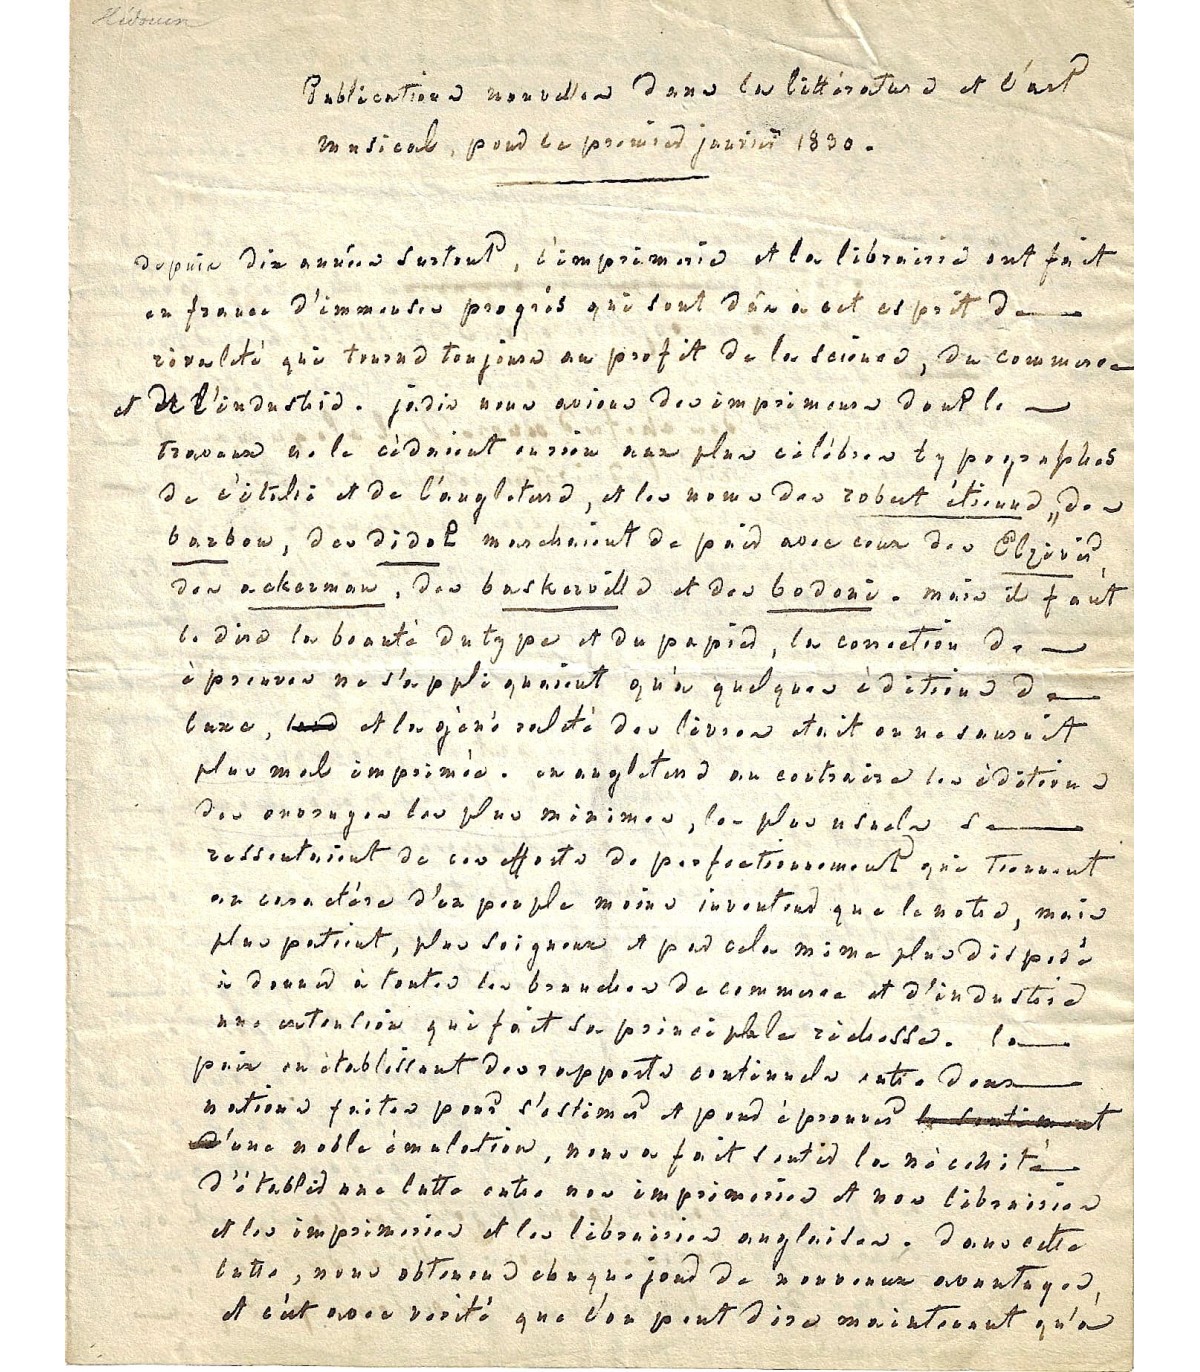 Hédouin
Publications nouvelles dans la littérature et l'art
musical, pour le premier janvier 1830.
depuis dix années surtout, l'imprimerie et la librairie ont fait
en france d'immenses progrès qui sont dûs à cet esprit de
rivalité qui tourne toujours au profit de la science, du commerce
et de l'industrie. jadis nous avions des imprimeurs dont le
travaux ne le cédaient en rien aux plus célèbres typographes
de l'italie et de l'angleterre, et les noms des robert étienne, des
barbou, des didot marchaient de paid avec ceux des Elzévir,
des ackerman, des baskerville et des bodoni. mais il faut
le dire la beauté du type et du papier, la correction de
épreuves ne s'appliquaient qu'à quelques éditions de
luxe, et la généralité des livres était on ne saurait
plus mal imprimée. en angleterre au contraire les éditions
des ouvrages les plus minimes, les plus usuels se
ressentaient de ces efforts de perfectionnement qui tiennent
au caractère d'un peuple moins inventeur que le notre, mais
plus patient, plus soigneux et par cela même plus disposé
à donner à toutes les branches de commerce et d'industrie
une extension qui fait sa principale richesse. la
paix en établissant des rapports continuels entre deux
nations faites pour s'estimer et pour éprouver le sentiment
d'une noble émulation, nous a fait sentir la nécessité
d'établir une lutte entre nos imprimeries et nos librairies
et les imprimeries et les librairies anglaises. dans cette
lutte, nous obtenons chaque jour de nouveaux avantages,
et c'est avec vérité que l'on peut dire maintenant qu'à